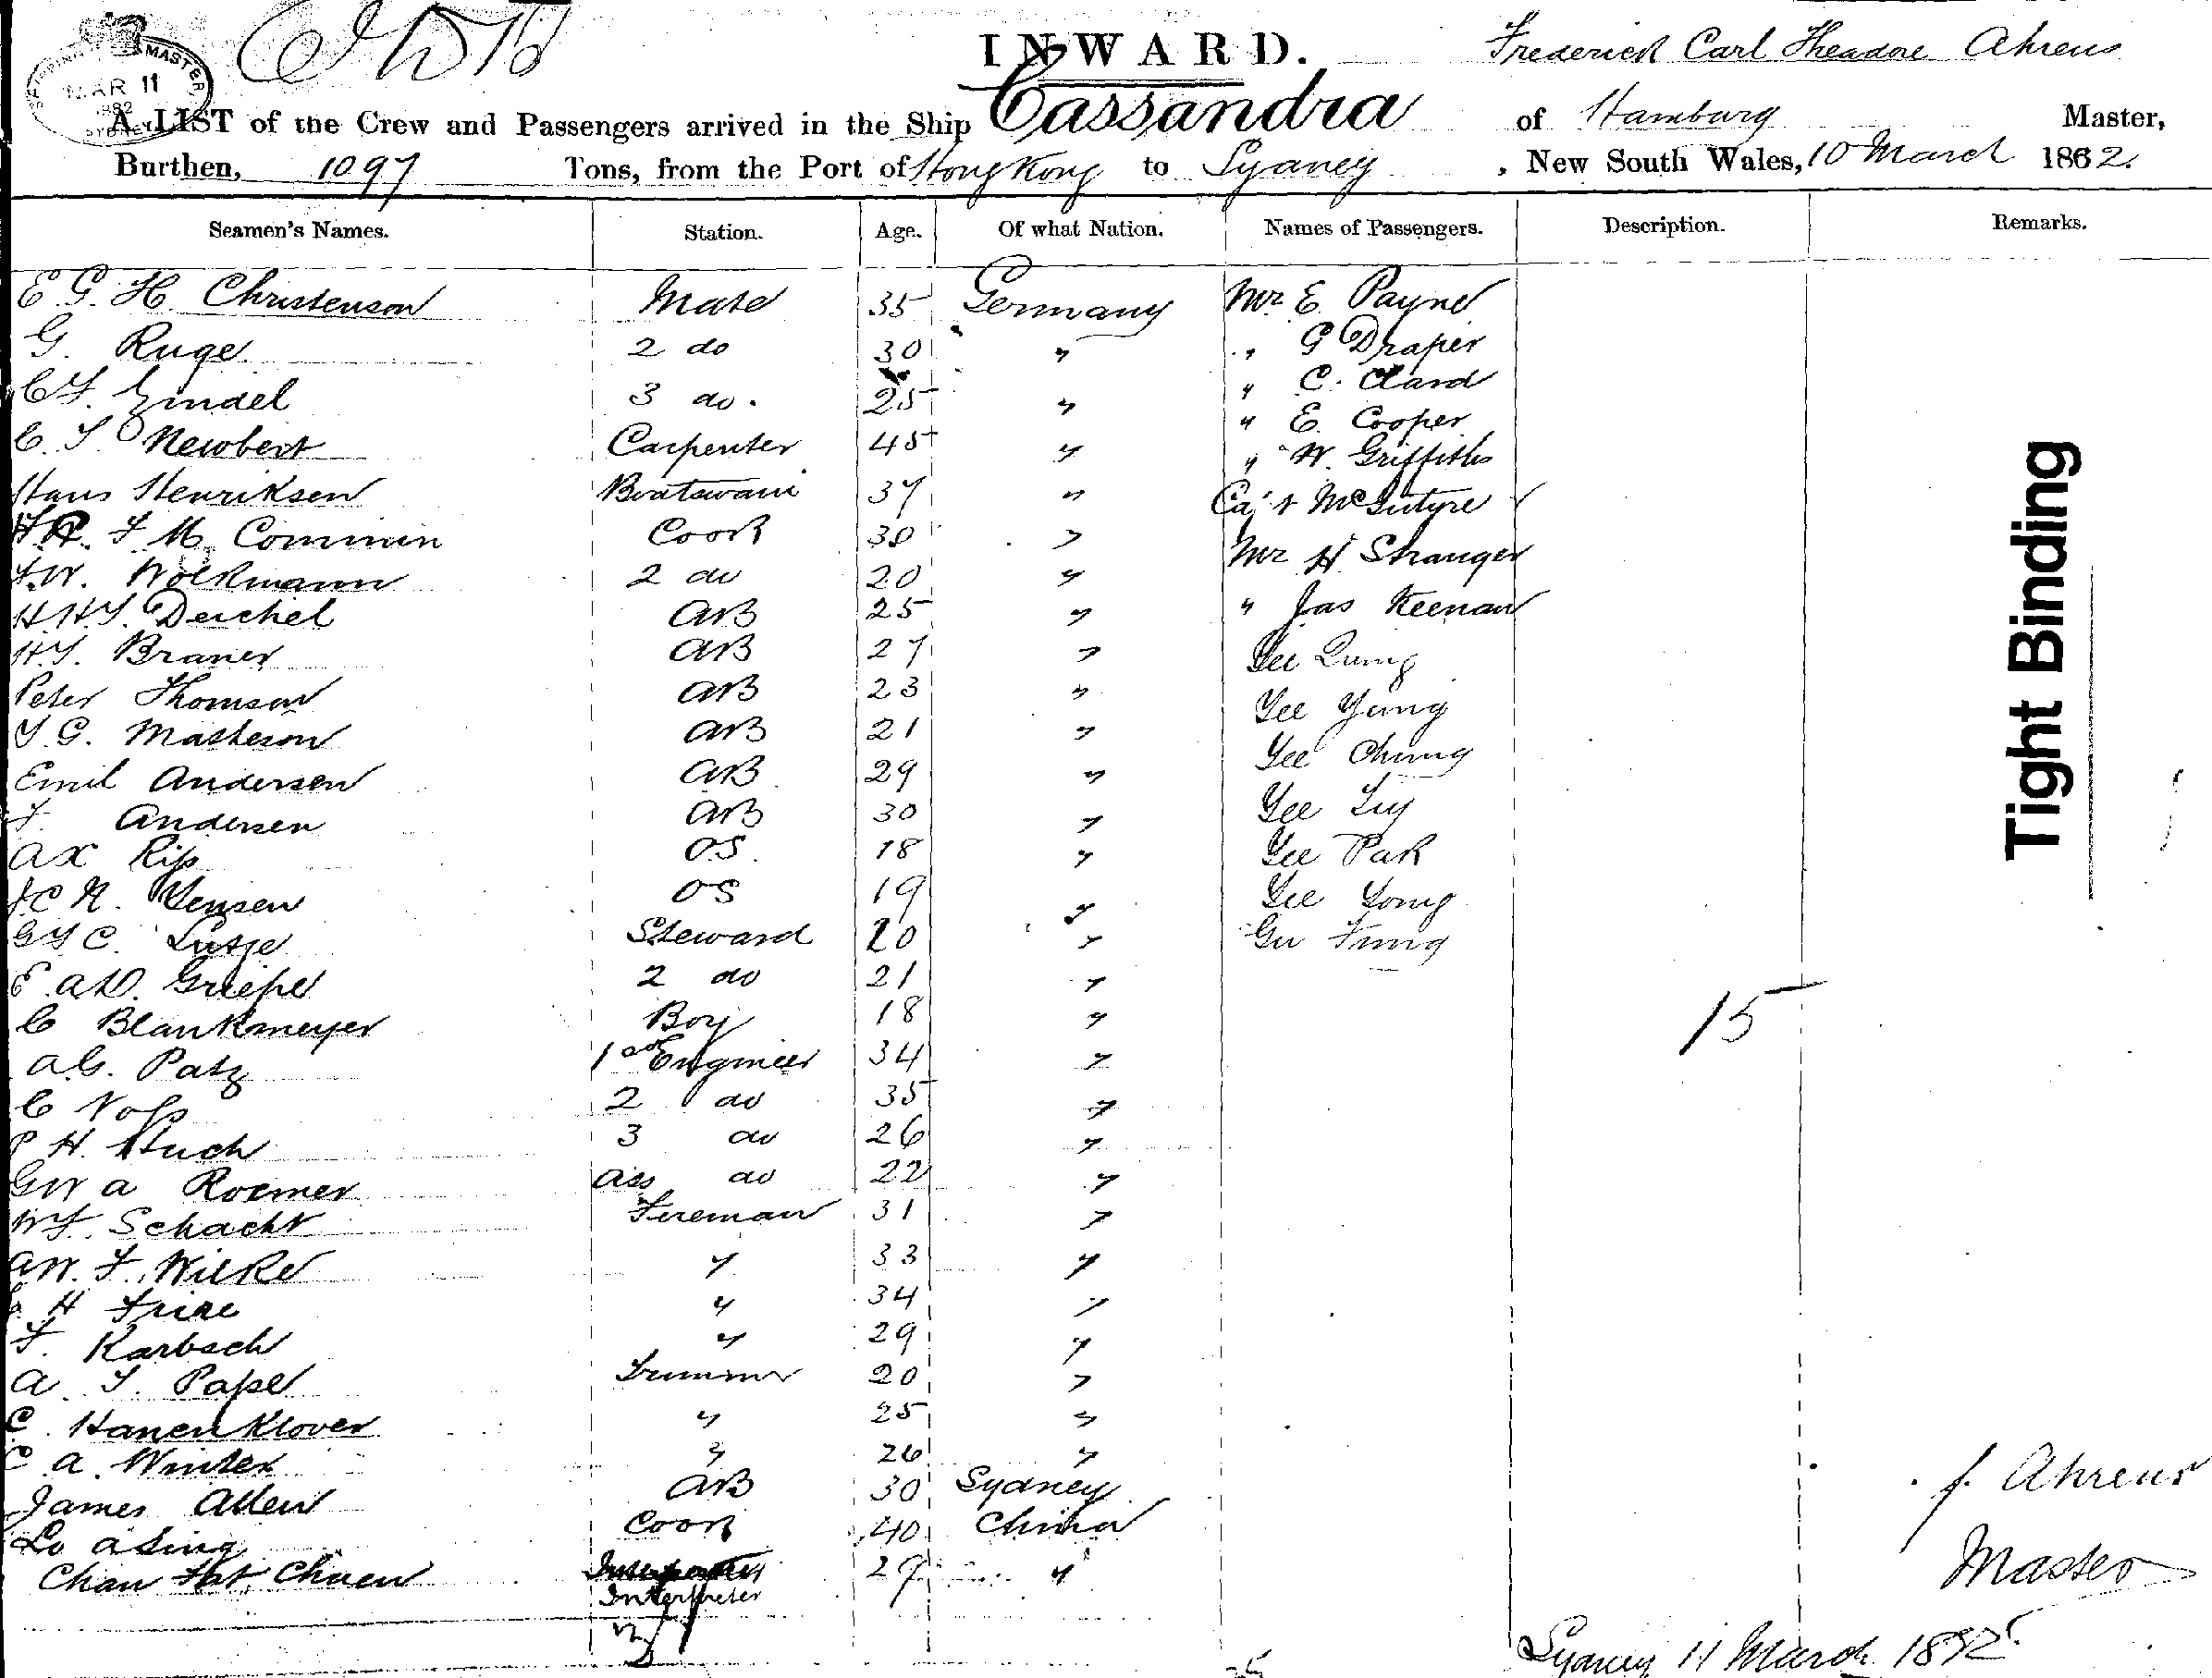 SHIPPING MASTER
MAR 11
1882
SYDNEY
INWARD.
Frederick Carl Theadore Ahrens
A LIST of the Crew and Passengers arrived in the Ship Cassandra of Hamburg Master,
Burthen, 1097 Tons, from the Port of Hong Kong to Sydney, New South Wales, 10 March 1882.
Seamen's Names. Station. Age. Of what Nation. Names of Passengers. Description. Remarks.
E. G. H. Christenson Mate 35 Germany Mr E. Payne
G. Ruge 2 do 30 " " G Draper
C. F. Zindel 3 do. 25 " " C. Clard
C. F. Newbert Carpenter 45 " " E. Cooper
" W. Griffiths
Hans Henriksen Boatswain 37 " Capt McIntyre
F. M. Commin Cook 30 " Mr H Stranger
F. W. Wolkmann 2 do 20 "
H. H. J. Deichel AB 25 " " Jas Keenan
H. J. Braner AB 27 " Yee Quing
Peter Thomson AB 23 " Yee Yung
J G. Matheson AB 21 " Yee Chung
Emil Andersen AB 29 "
F. Andersen AB 30 " Yee Luy
AX Rip OS. 18 " Yee Pak
J C N. Jensen OS 19 " Yee Yong
G J C. Lutje Steward 20 " Gee Fung
E. A. D. Griepe 2 do 21 "
C Blankmeyer Boy 18 " 15
A G. Patz 1st Engineer 34 "
C Voss 2 do 35 "
P H. Huch 3 do 26 "
G W A Roemer Ass do 22 "
W F. Schacht Fireman 31 "
A W. F. Wilke " 33 "
H Frire " 34 "
F. Karbsch " 29 "
A. J. Pape Trimmer 20 "
C. Hanenklover " 25 "
C A. Winter " 26 "
James Allen AB 30 Sydney f. Ahrens
Lo Asing Cook 40 China
Chan Fat Chuen Interpreter 29 " Master
Sydney 11 March 1882
Tight Binding